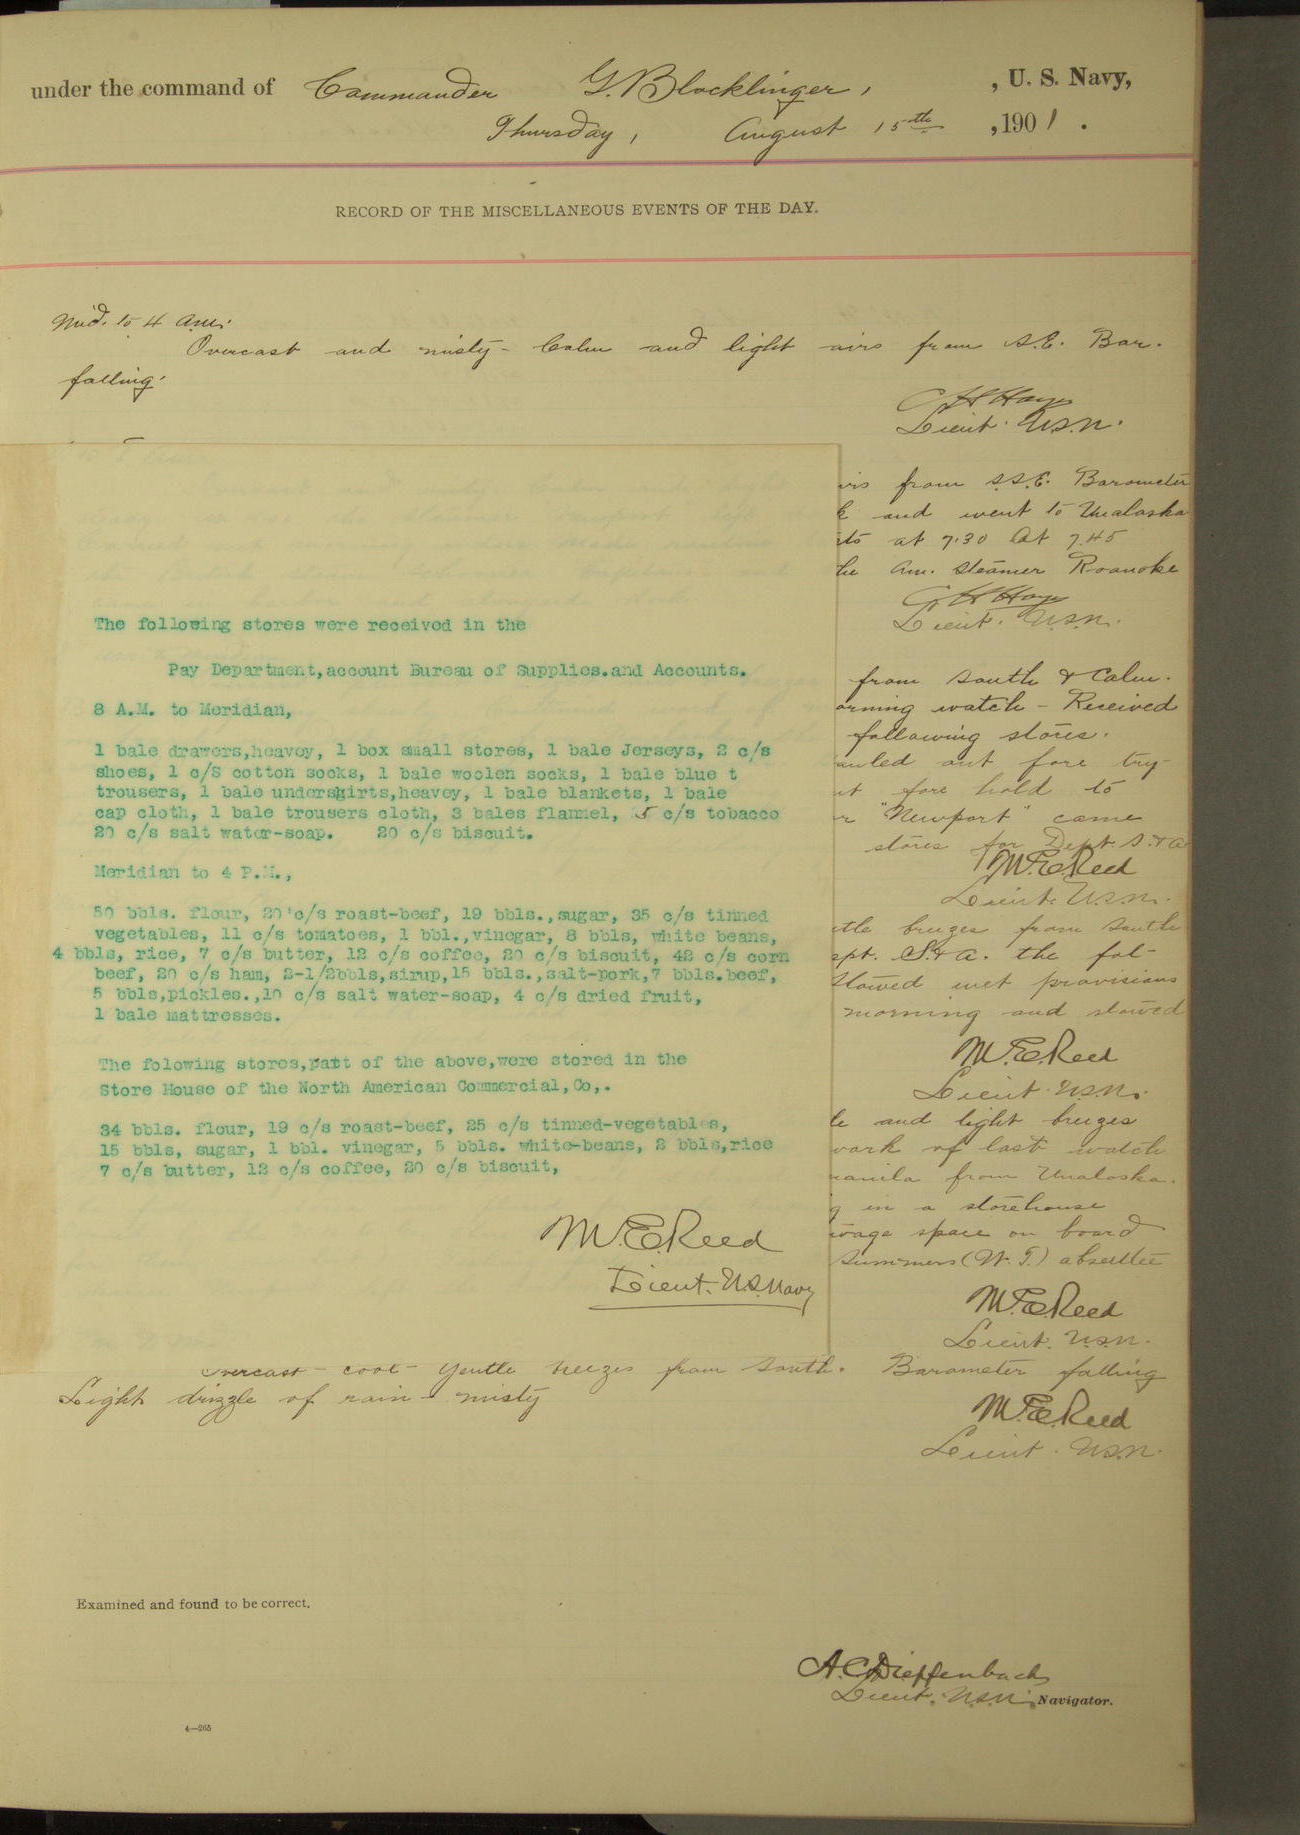 under the command of Commander G. Blocklinger, , U. S. Navy,
Thursday, August 15th , 1901.
RECORD OF THE MISCELLANEOUS EVENTS OF THE DAY.
Mid. to 4 a.m.
Overcast and misty - Calm and light airs from S.E. Bar.
falling.
C H Hayes
Lieut. U.S.N.
irs from S.S.E. Barometer
k and went to Unalaska
at 7.30 At 7.45
he Am. Steamer Roanoke
C H Hayes
Lieut. U.S.N.
from South & Calm.
orning watch - Received
following stores.
auled out fore try-
ut fore hold to
r "Newport" came
stores for Dept. S. & A
M. E. Reed
Lieut. U.S.N.
The following stores were received in the
Pay Department,account Bureau of Supplies.and Accounts.
8 A.M. to Meridian,
1 bale drawers,heavey, 1 box small stores, 1 bale Jerseys, 2 c/s
shoes, 1 c/s cotton socks, 1 bale woolen socks, 1 bale blue t
trousers, 1 bale undershirts,heavey, 1 bale blankets, 1 bale
cap cloth, 1 bale trousers cloth, 3 bales flannel, 5 c/s tobacco
20 c/s salt water-soap. 20 c/s biscuit.
Meridian to 4 P.M.,
50 bbls. flour, 20 c/s roast-beef, 19 bbls.,sugar, 35 c/s tinned
vegetables, 11 c/s tomatoes, 1 bbl.,vinegar, 8 bbls, white beans,
4 bbls, rice, 7 c/s butter, 12 c/s coffee, 20 c/s biscuit, 42 c/s corn
beef, 20 c/s ham, 2-1/2bbls,sirup,15 bbls.,salt-pork,7 bbls.beef,
5 bbls,pickles.,10 c/s salt water-soap, 4 c/s dried fruit,
1 bale mattresses.
The folowing stores,part of the above,were stored in the
Store House of the North American Commercial,Co,.
34 bbls. flour, 19 c/s roast-beef, 25 c/s tinned-vegetables,
15 bbls, sugar, 1 bbl. vinegar, 5 bbls. white-beans, 2 bbls,rice
7 c/s butter, 12 c/s coffee, 20 c/s biscuit,
M. E. Reed
Lieut. U.S. Navy
tle breezes from South
ept. S. & A. the fol-
Stowed wet provisions
morning and stowed
M. E. Reed
Lieut. U.S.N.
le and light breezes
work of last watch
manila from Unalaska.
g in a storehouse
wage space on board
Summers (W. T.) absentee
M. E. Reed
Lieut. U.S.N.
Overcast - cool - Gentle breezes from South. Barometer falling
Light drizzle of rain - misty
M. E. Reed
Lieut. U.S.N.
Examined and found to be correct.
A. C. Dieffenbach
Lieut. U.S.N. Navigator.
4—265